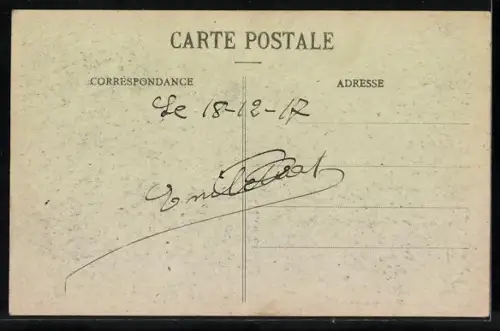 CARTE POSTALE
CORRESPONDANCE
ADRESSE
Le 18-12-17